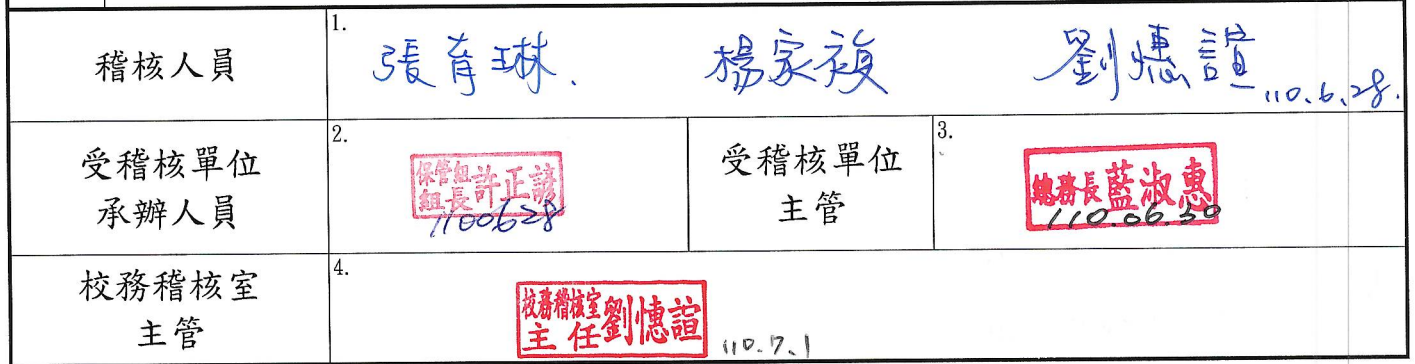 稽核人員
1.
張育琳. 楊家複 劉憓諠 110.6.28.
受稽核單位
承辦人員
2.
保管組
組長 許正諺
1100628
受稽核單位
主管
3.
總務長 藍淑惠
110.06.30
校務稽核室
主管
4.
校務稽核室
主任 劉憓諠
110.7.1